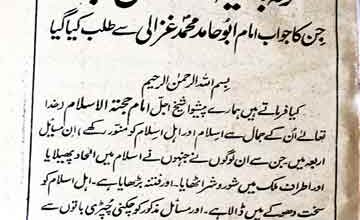 جن کا جواب امام ابو حامد محمد غزالی سے طلب کیا گیا
بسم اللہ الرحمٰن الرحیم
کیا فرماتے ہیں ہمارے پیشوا شیخ اجل امام حجۃ الاسلام (خدا
تعالےٰ اُن کے جمال سے اسلام اور اہل اسلام کو منور رکھے) ان مسایل
اربعہ میں جن سے ان لوگوں نے جنہوں نے اسلام میں الحاد پھیلایا
اور اطراف ملک میں شور و شر اٹھایا۔ اور فتنہ بڑھایا ہے۔ اہل اسلام کو
سخت دھوکے میں ڈالا ہے۔ اور مسائل مذکور کو چکنی چپڑی باتوں سے